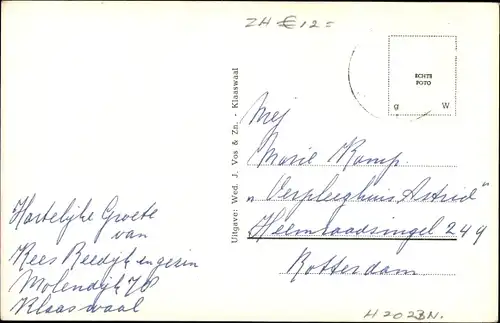 ZH € 12=
ECHTE
FOTO
g W
Uitgave: Wed. J. Vos & Zn. - Klaaswaal
Mej
Marie Kamp.
"Verpleeghuis Astrid"
Heemraadsingel 249
Rotterdam
Hartelijke Groete
van
Kees Reedijk en gezin
Molendijk 78
Klaaswaal
H2023N.